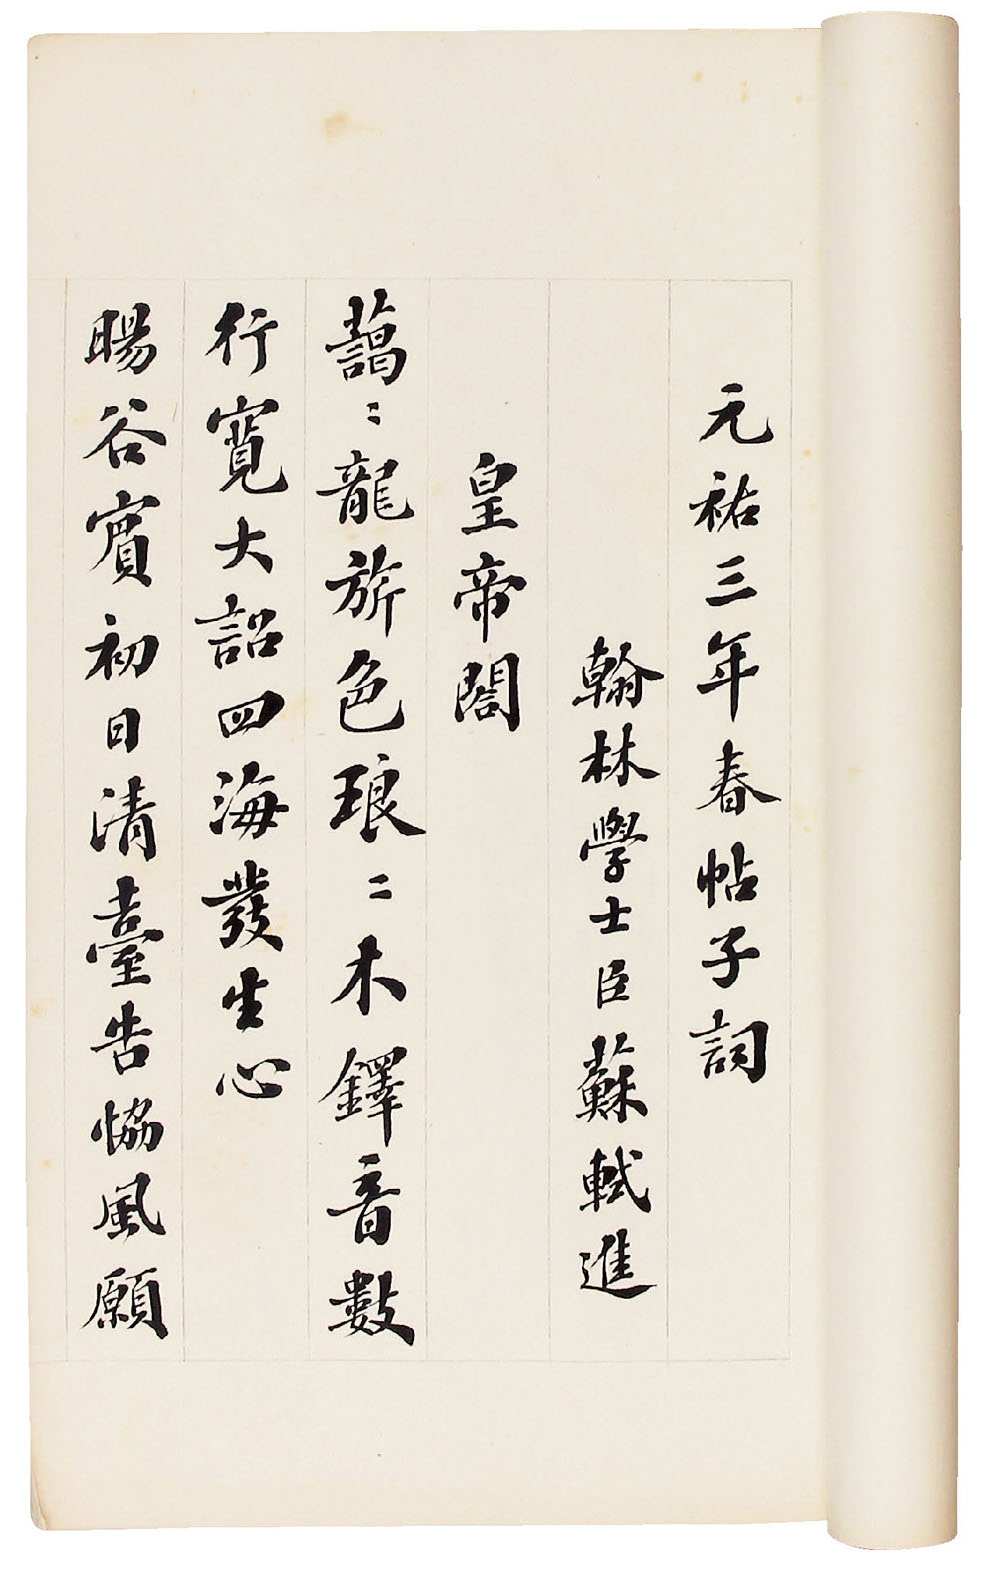 元祐三年春帖子詞
翰林學士臣蘇軾進
皇帝閤
藹〻龍旂色琅〻木鐸音數
行寬大詔四海發生心
暘谷賓初日清臺告協風願